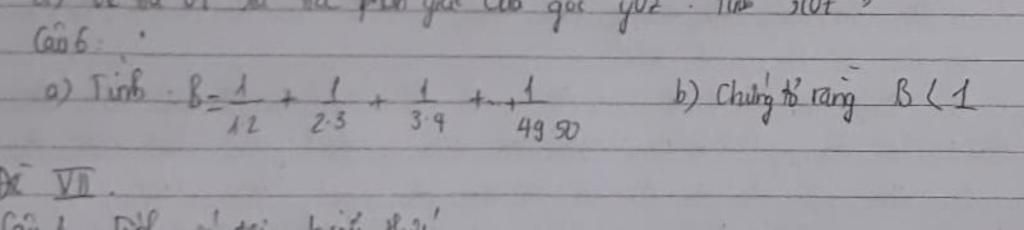 góc yOz.
Câu 6:
a) Tính B = 1/1.2 + 1/2.3 + 1/3.4 + ... + 1/49.50 b) Chứng tỏ rằng B < 1
Đề VII.